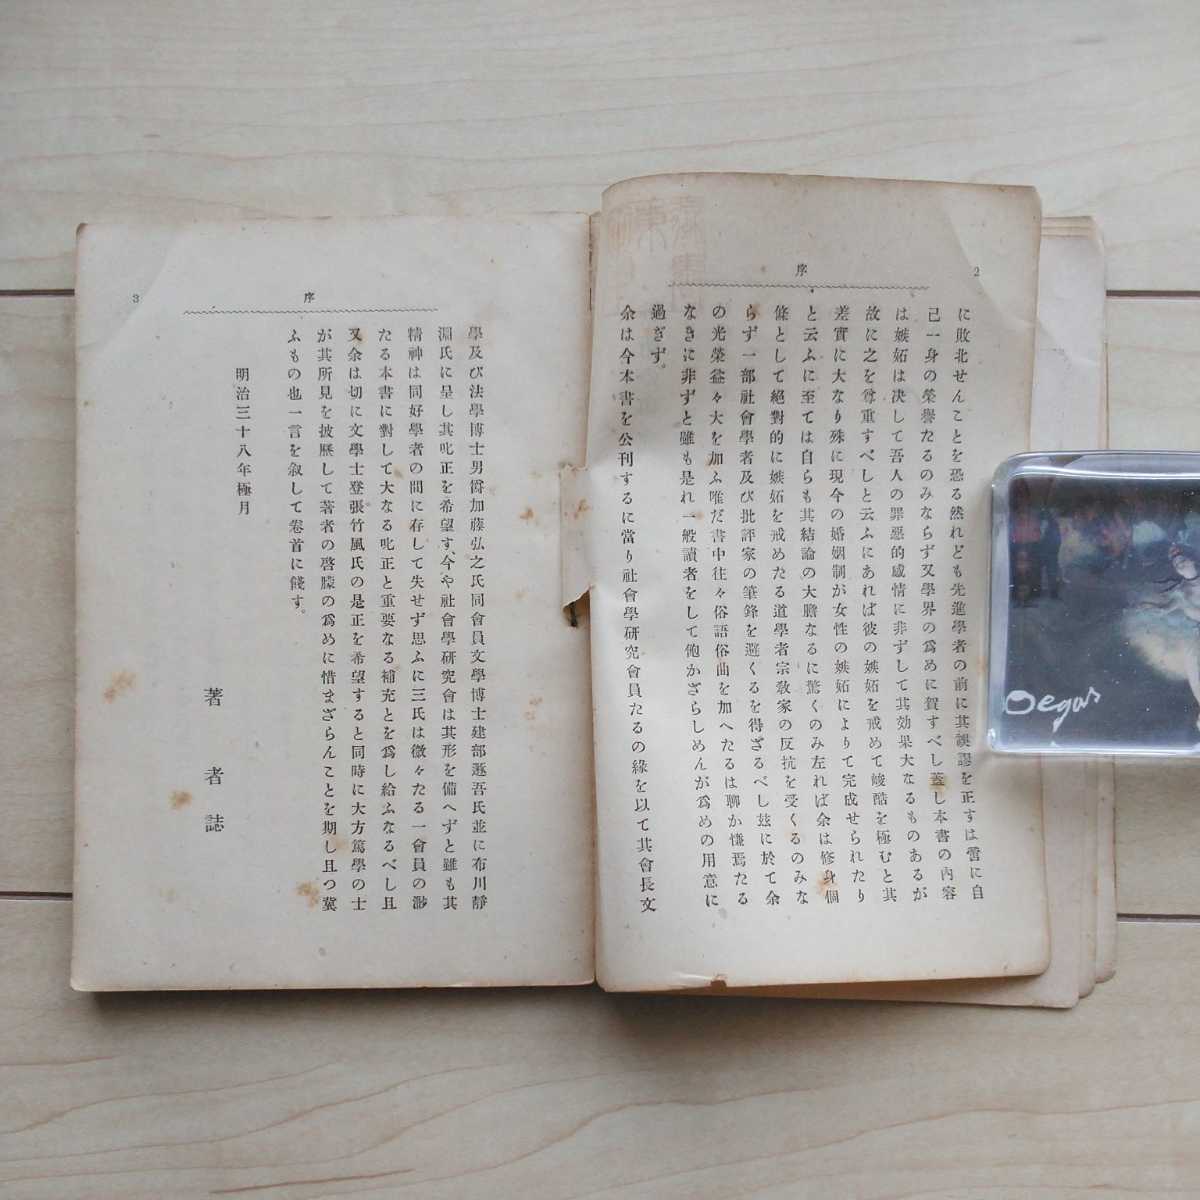 2
序
に敗北せんことを恐る然れども先進學者の前に其誤謬を正すは啻に自
己一身の榮譽たるのみならず又學界の爲めに賀すべし蓋し本書の內容
は嫉妬は決して吾人の罪惡的感情に非ずして其効果大なるものあるが
故に之を尊重すべしと云ふにあれば彼の嫉妬を戒めて峻酷を極むと其
差實に大なり殊に現今の婚姻制が女性の嫉妬によりて完成せられたり
と云ふに至ては自らも其結論の大膽なるに驚くのみ左れば余は修身個
條として絕對的に嫉妬を戒めたる道學者宗敎家の反抗を受くるのみな
らず一部社會學者及び批評家の筆鋒を避くるを得ざるべし玆に於て余
の光榮益々大を加ふ唯だ書中往々俗語俗曲を加へたるは聊か慊焉たる
なきに非ずと雖も是れ一般讀者をして飽かざらしめんが爲めの用意に
過ぎず。
余は今本書を公刊するに當り社會學硏究會員たるの緣を以て其會長文
3
序
學及び法學博士男爵加藤弘之氏同會員文學博士建部遯吾氏並に布川靜
淵氏に呈し其叱正を希望す今や社會學硏究會は其形を備へずと雖も其
精神は同好學者の間に存して失せず思ふに三氏は微々たる一會員の渺
たる本書に對して大なる叱正と重要なる補充とを爲し給ふなるべし且
又余は切に文學士登張竹風氏の是正を希望すると同時に大方篤學の士
が其所見を披瀝して著者の啓朦の爲めに惜まざらんことを期し且つ冀
ふもの也一言を叙して卷首に餞す。
明治三十八年極月
著者誌
Degas